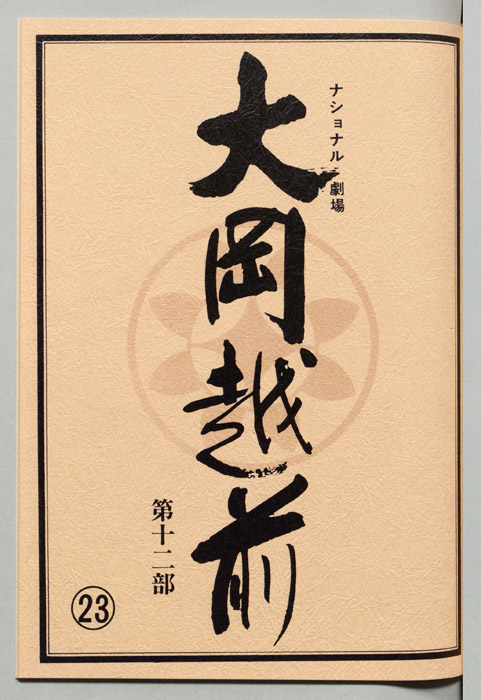 ナショナル劇場
大岡越前
第十二部
23